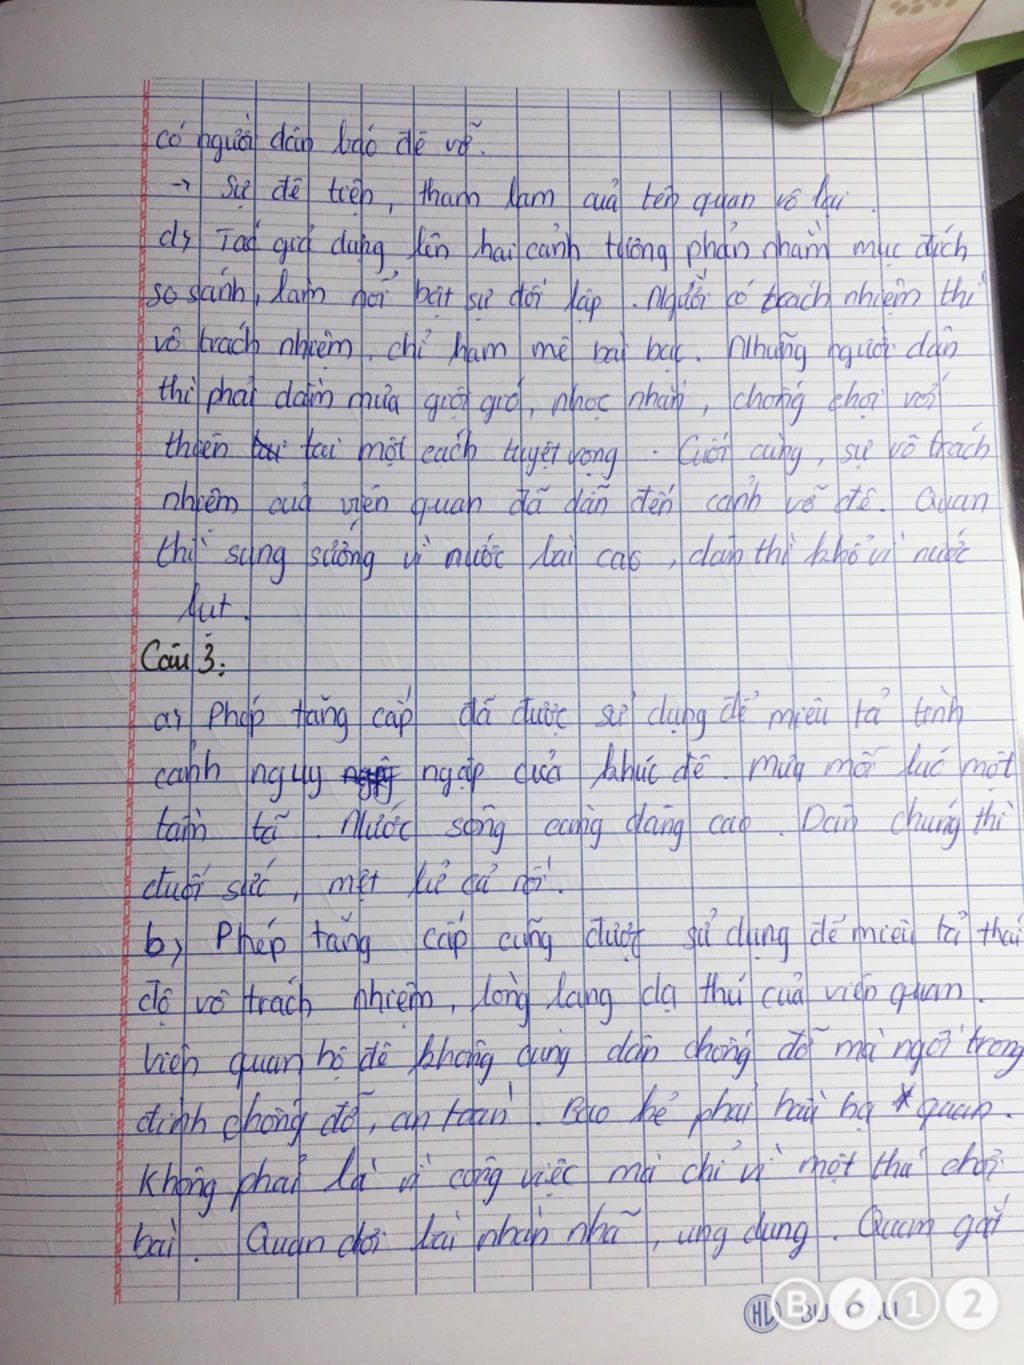 có người dân báo đê vỡ.
→ Sự đê tiện, tham lam của tên quan vô lại.
d, Tác giả dựng lên hai cảnh tương phản nhằm mục đích
so sánh, làm nổi bật sự đối lập. Người có trách nhiệm thì
vô trách nhiệm, chỉ ham mê bài bạc. Những người dân
thì phải dầm mưa giội gió, nhọc nhằn, chống chọi với
thiên tai một cách tuyệt vọng. Cuối cùng, sự vô trách
nhiệm của viên quan đã dẫn đến cảnh vỡ đê. Quan
thì sung sướng vì nước bài cao, dân thì khổ vì nước
lụt.
Câu 3:
a, Phép tăng cấp đã được sử dụng để miêu tả tình
cảnh nguy ngập của khúc đê. Mưa mỗi lúc một
tầm tã. Nước sông càng dâng cao. Dân chúng thì
đuối sức, mệt lử cả rồi.
b, Phép tăng cấp cũng được sử dụng để miêu tả thái
độ vô trách nhiệm, lòng lang dạ thú của viên quan.
Viên quan hộ đê không cùng dân chống đỡ mà ngồi trong
đình chống đỡ, an toàn. Bao kẻ phải hầu hạ * quan.
Không phải là vì công việc mà chỉ vì một thú chơi
bài. Quan đợi bài nhàn nhã, ung dung. Quan gắt
HL
B612